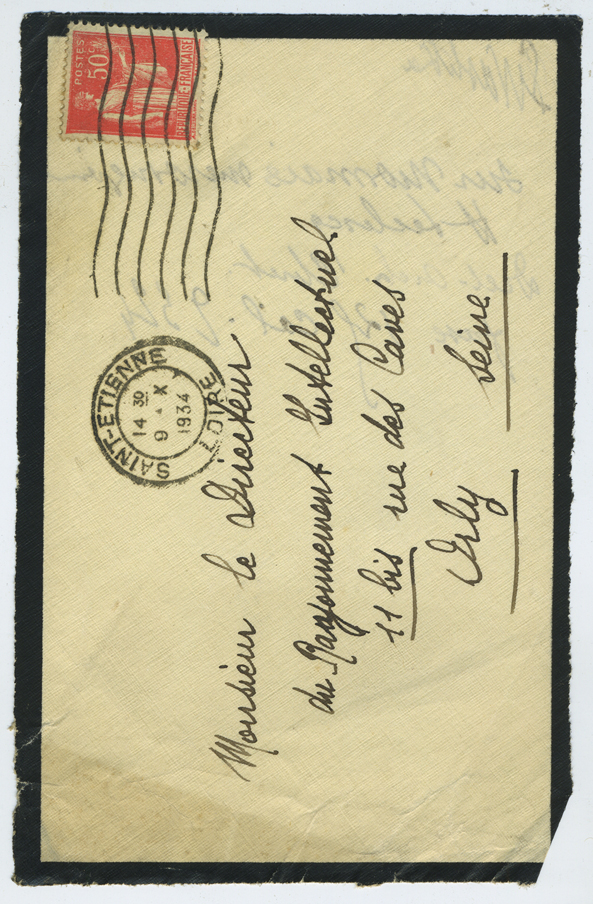 POSTES
50c
REPUBLIQUE FRANÇAISE
SAINT-ETIENNE
14 30
9 - X
1934
LOIRE
Monsieur le Directeur
du Rayonnement Intellectuel
11 bis rue des Caves
Orly Seine